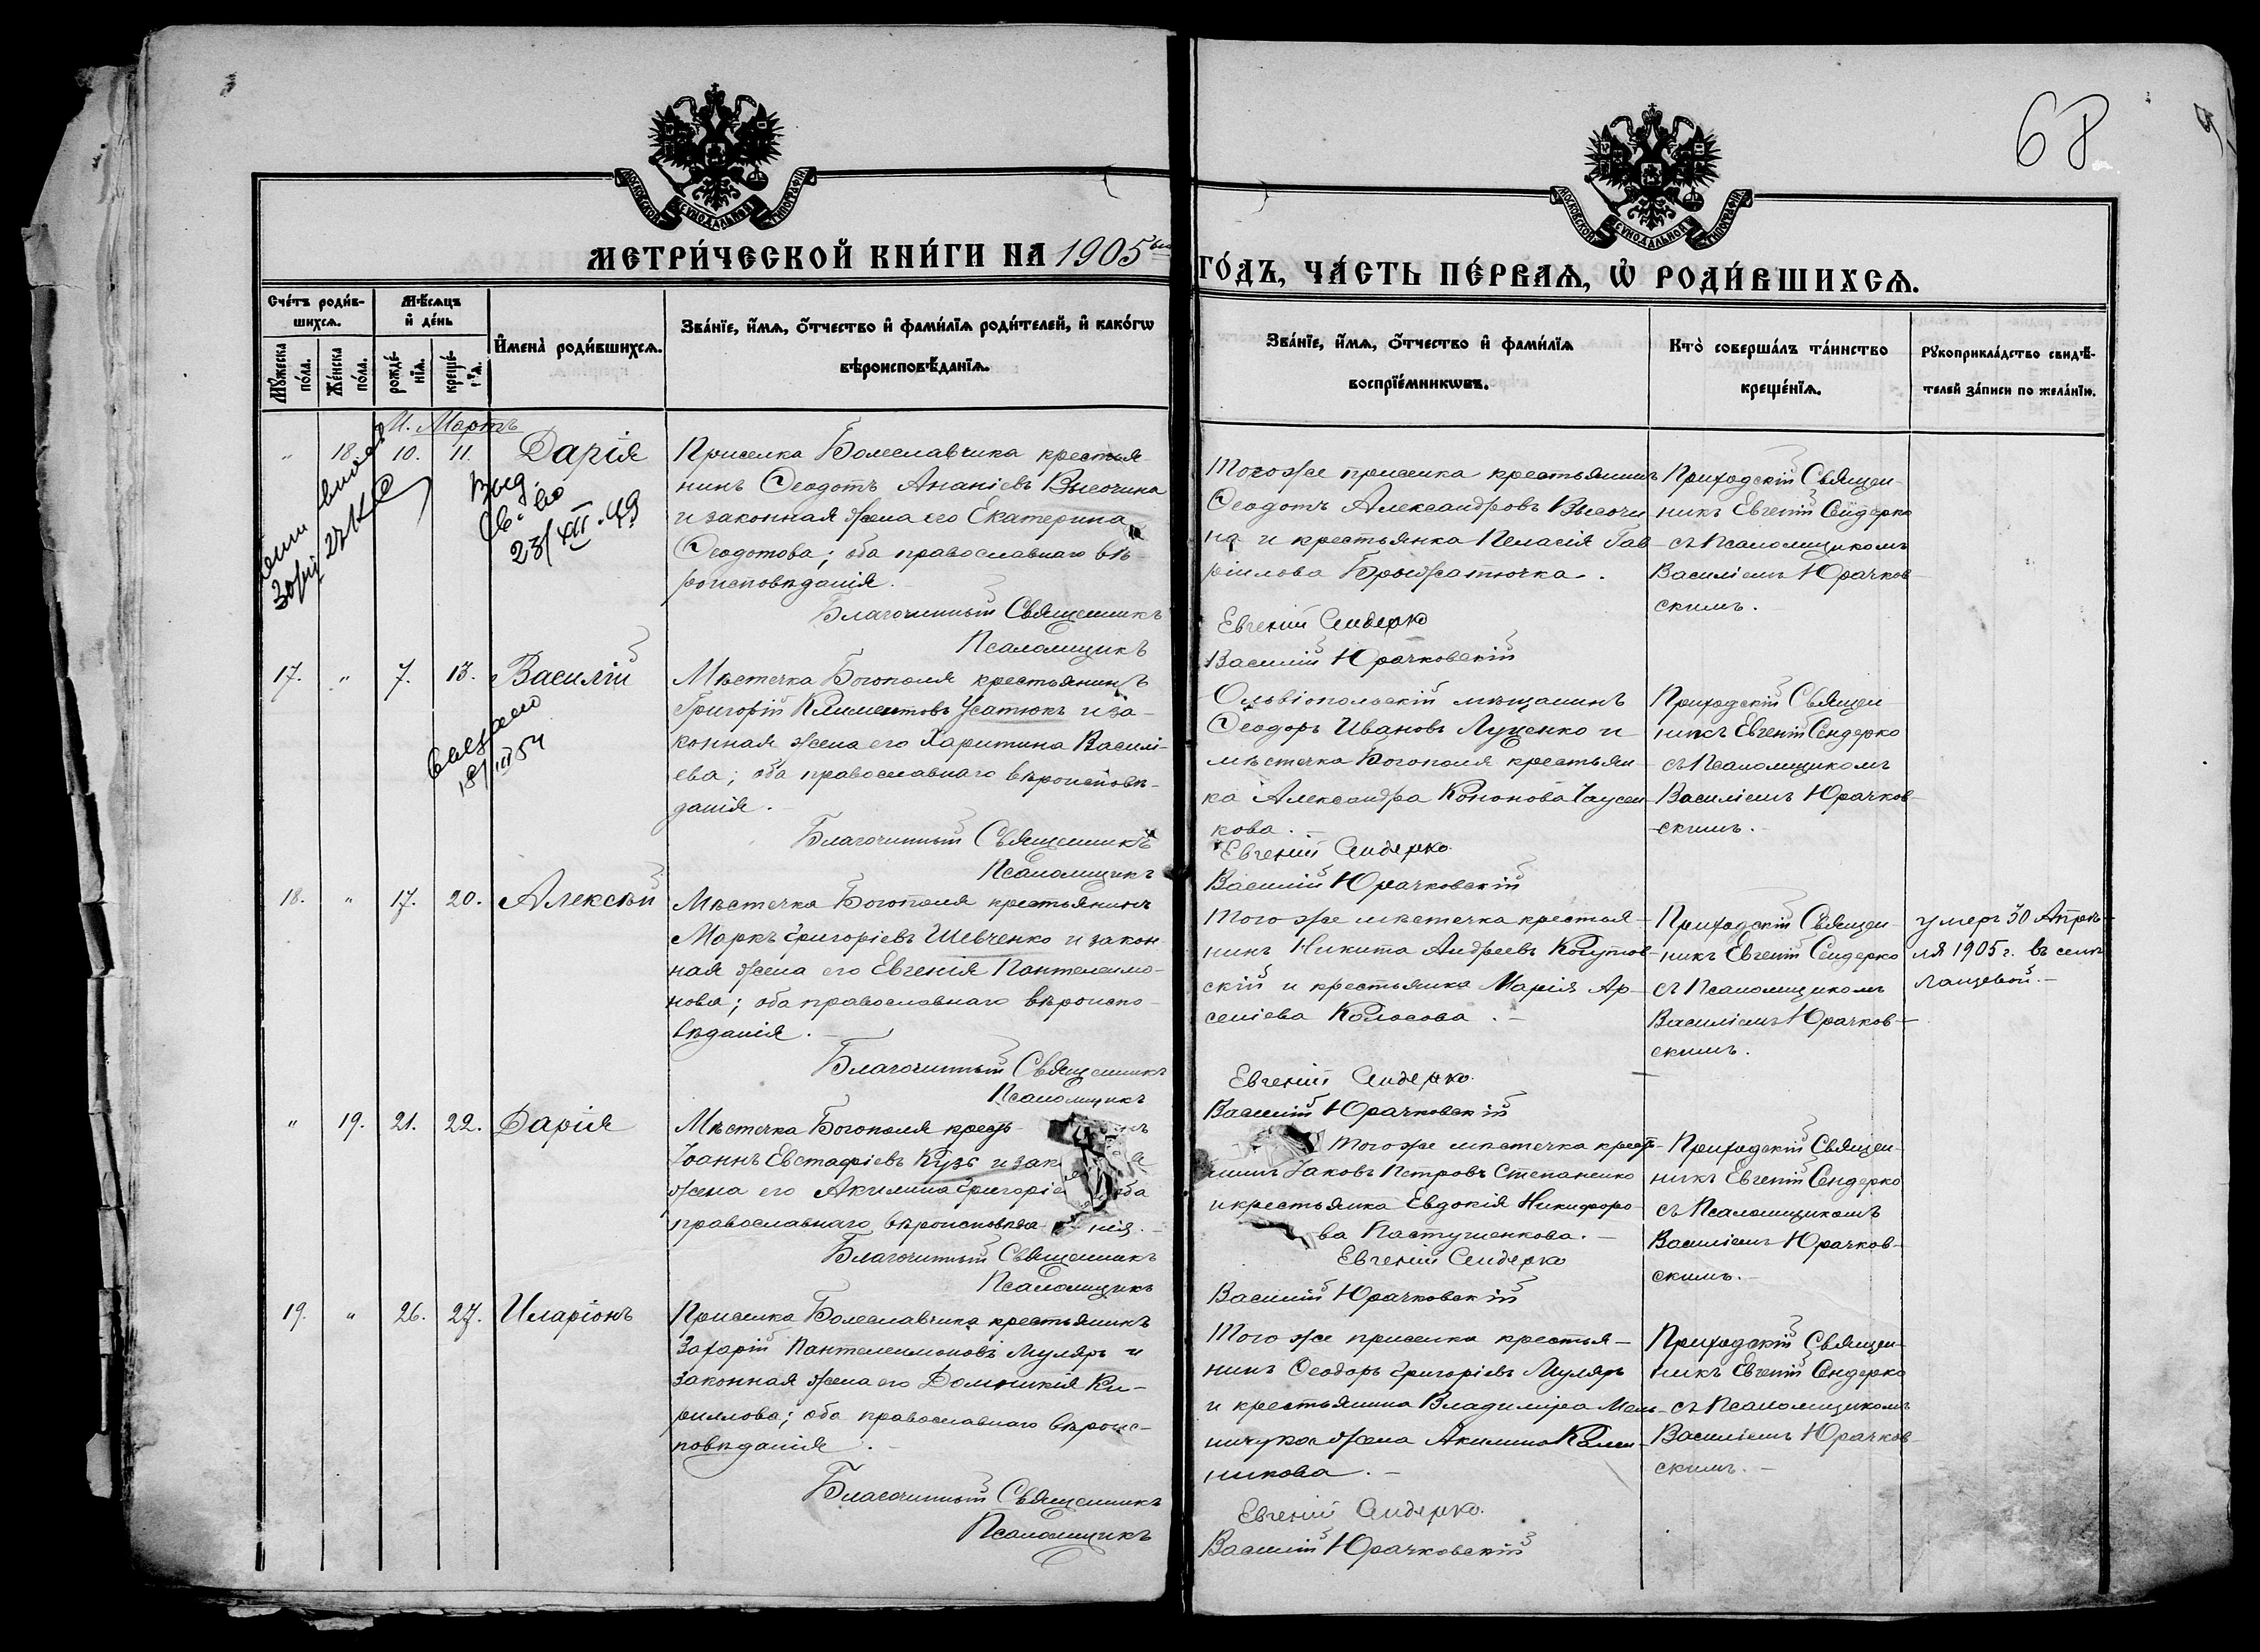 68
МОСКОВСКОЙ СѴНОДАЛЬНОЙ ТИПОГРАФІИ
МОСКОВСКОЙ СѴНОДАЛЬНОЙ ТИПОГРАФІИ
МЕТРИ́ЧЕСКОЙ КНИ́ГИ НА 1905
ГО́ДЪ, ЧА́СТЬ ПЕ́РВАѦ, Ѡ РОДИ́ВШИХСѦ.
Сче́тъ роди́в-
шихсѧ.
Мꙋ́жеска
по́ла.
Же́нска
по́ла.
Мѣ́сѧцъ
и҆ де́нь
рожде́-
нїѧ.
креще́-
нїѧ.
И҆мена̀ роди́вшихсѧ.
Зва́нїе, и҆́мѧ, ѻ҆́тчество и҆ фами́лїѧ роди́телей, и҆ како́гѡ
вѣроисповѣ́данїѧ.
Зва́нїе, и҆́мѧ, ѻ҆́тчество и҆ фами́лїѧ
воспрїе́мникѡвъ.
Кто̀ соверша́лъ та́инство
креще́нїѧ.
Рꙋкоприкла́дство свидѣ́-
телей за́писи по жела́нїю.
М. Мартъ
" 18. 10. 11. Дарія
Выд.
св-во
23/XII-49
Приселка Болеславчика крестья-
нинъ Ѳеодотъ Ананіевъ Высочина
и законная жена его Екатерина
Ѳеодотова; оба православнаго вѣ-
роисповѣданія.
Благочинный Священникъ
Псаломщикъ
Того же приселка крестьянинъ
Ѳеодотъ Александровъ Высочи
на и крестьянка Пелагія Гав-
ріилова Брыжатючка.
Евгеній Сендерко
Василій Юрачковскій
Приходскій Священ-
никъ Евгеній Сендерко
съ Псаломщикомъ
Василіемъ Юрачков-
скимъ.
17. " 7. 13. Василій
18/III 54
Мѣстечка Богополя крестьянинъ
Григорій Климентовъ Усатюкъ и за-
конная жена его Харитина Василі-
ева; оба православнаго вѣроисповѣ-
данія.
Благочинный Священникъ
Псаломщикъ
Ольвіопольскій мѣщанинъ
Ѳеодоръ Ивановъ Луценко и
мѣстечка Богополя крестьян-
ка Александра Кононова Гаусен-
кова.
Евгеній Сендерко
Василій Юрачковскій
Приходскій Священ-
никъ Евгеній Сендерко
съ Псаломщикомъ
Василіемъ Юрачков-
скимъ.
18. " 17. 20. Алексѣй
Мѣстечка Богополя крестьянинъ
Маркъ Григоріевъ Шевченко и закон-
ная жена его Евгенія Пантелеимо-
нова; оба православнаго вѣроиспо-
вѣданія.
Благочинный Священникъ
Псаломщикъ
Того же мѣстечка крестья-
нинъ Никита Андреевъ
скій и крестьянка Марія Ар-
сеніева Колосова.
Евгеній Сендерко
Василій Юрачковскій
Приходскій Священ-
никъ Евгеній Сендерко
съ Псаломщикомъ
Василіемъ Юрачков-
скимъ.
умеръ 30 Апрѣ-
ля 1905 г.
" 19. 21. 22. Дарія
Мѣстечка Богополя крест
Іоаннъ Евстафіевъ Кузь и зак
жена его Акилина Григоріе оба
православнаго вѣроисповѣда нія.
Благочинный Священникъ
Псаломщикъ
Того же мѣстечка крест-
нинъ Іаковъ Петровъ Степаненко
и крестьянка Евдокія Никифоро-
ва Пастушенкова.
Евгеній Сендерко
Василій Юрачковскій
Приходскій Священ-
никъ Евгеній Сендерко
съ Псаломщикомъ
Василіемъ Юрачков-
скимъ.
19. " 26. 27. Иларіонъ
Приселка Болеславчика крестьянинъ
Захарій Пантелеимоновъ Муляръ и
законная жена его Домникія Ки-
риллова; оба православнаго вѣроис-
повѣданія.
Благочинный Священникъ
Псаломщикъ
Того же приселка крестья-
нинъ Ѳеодоръ Григоріевъ Муляръ
и крестьянина Владиміра Мель-
ничука жена Акилина
никова.
Евгеній Сендерко
Василій Юрачковскій
Приходскій Священ-
никъ Евгеній Сендерко
съ Псаломщикомъ
Василіемъ Юрачков-
скимъ.